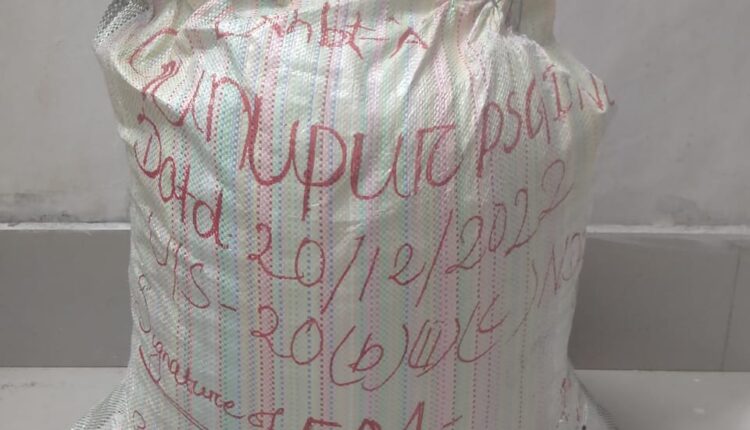 Exhbt-A
Gunupur PSGIN
Datd 20/12/2022
U/S-20(b)(ii)(c)
Signature of